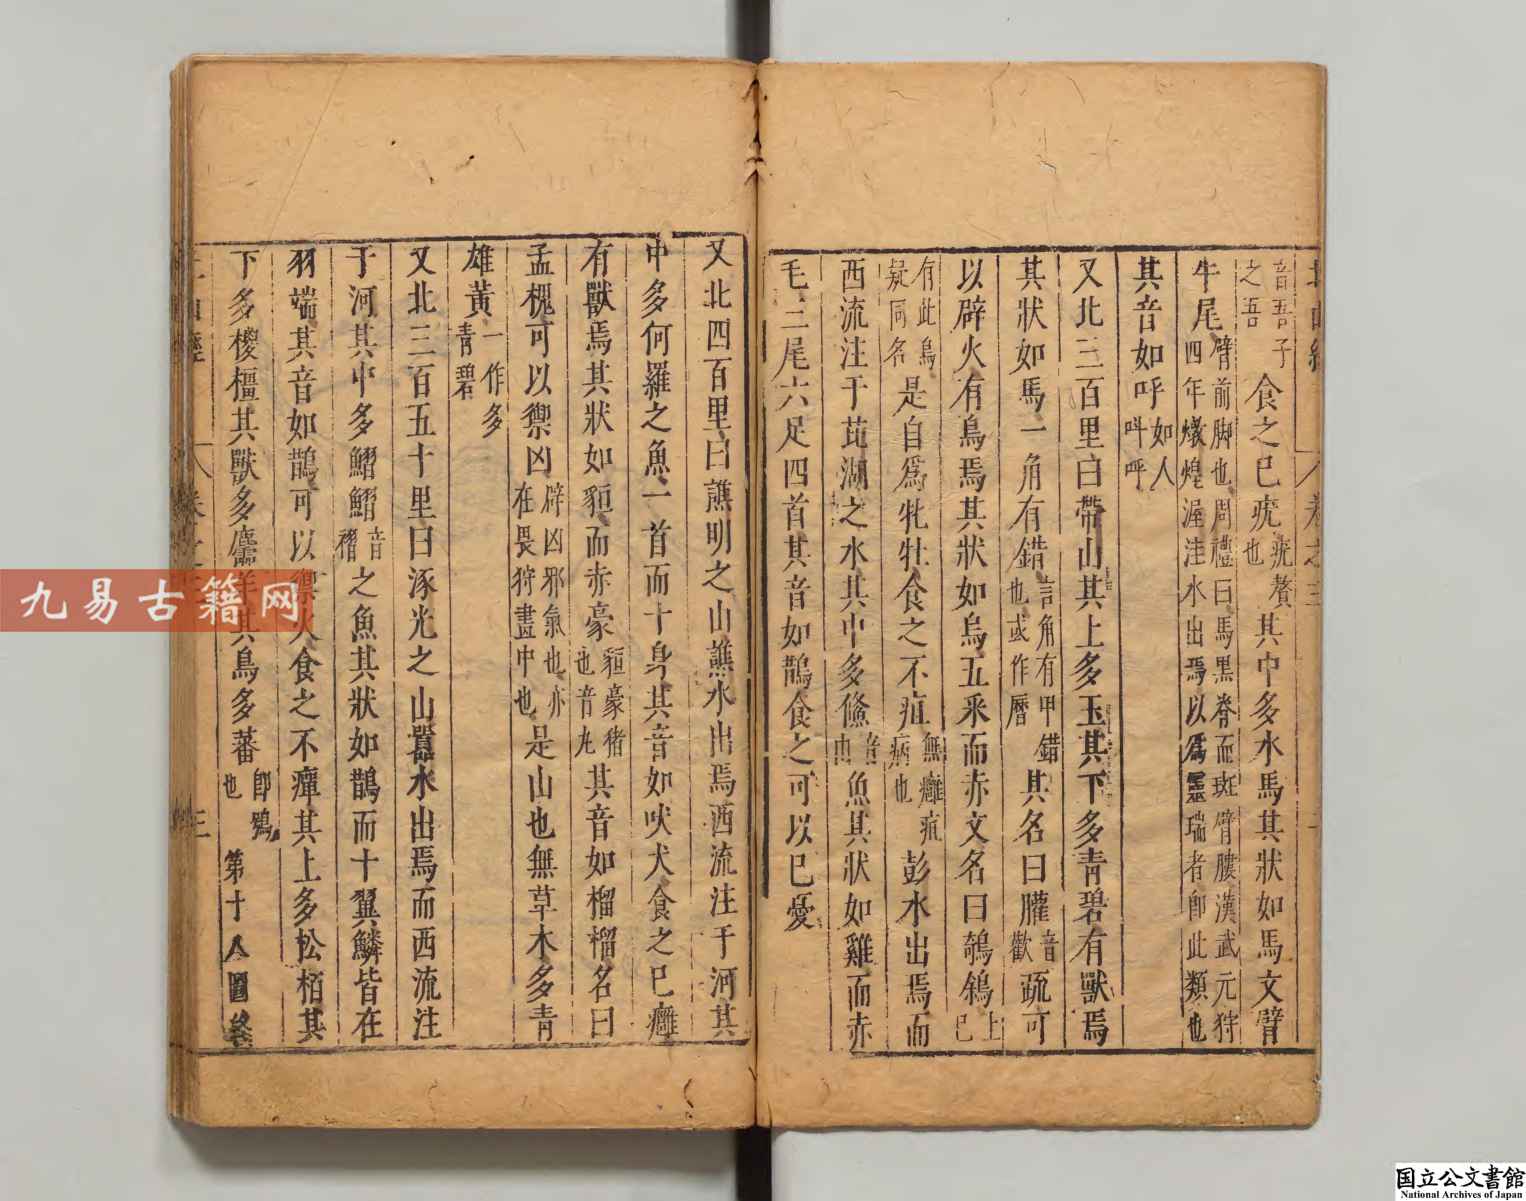 音吾子
之吾
食之已疣
疣贅
也
其中多水馬其狀如馬文臂
牛尾
臂前脚也周禮曰馬黑脊而斑臂膢漢武元狩
四年燉煌渥洼水出焉以爲靈瑞者即此類也
其音如呼
如人
叫呼
又北三百里曰帶山其上多玉其下多青碧有獸焉
其狀如馬一角有錯
言角有甲錯
也或作厝
其名曰䑏
音
歡
疏可
以辟火有鳥焉其狀如烏五采而赤文名曰鵸鵌
上
已
有此鳥
疑同名
是自爲牝牡食之不疽
無癰疽
病也
彭水出焉而
西流注于芘湖之水其中多儵
音
由
魚其狀如雞而赤
毛三尾六足四首其音如鵲食之可以已憂
又北四百里曰譙明之山譙水出焉西流注于河其
中多何羅之魚一首而十身其音如吠犬食之已癰
有獸焉其狀如貆而赤豪
貆豪猪
也音丸
其音如榴榴名曰
孟槐可以禦凶
辟凶邪氣也亦
在畏狩畫中也
是山也無草木多青
雄黃
一作多
青碧
又北三百五十里曰涿光之山囂水出焉而西流注
于河其中多鰼鰼
音
褶
之魚其狀如鵲而十翼鱗皆在
羽端其音如鵲可以禦火食之不癉其上多松栢其
下多椶橿其獸多麢羊其鳥多蕃
即鴞
也
第十八圖終
卷之三
三
九易古籍网
国立公文書館
National Archives of Japan